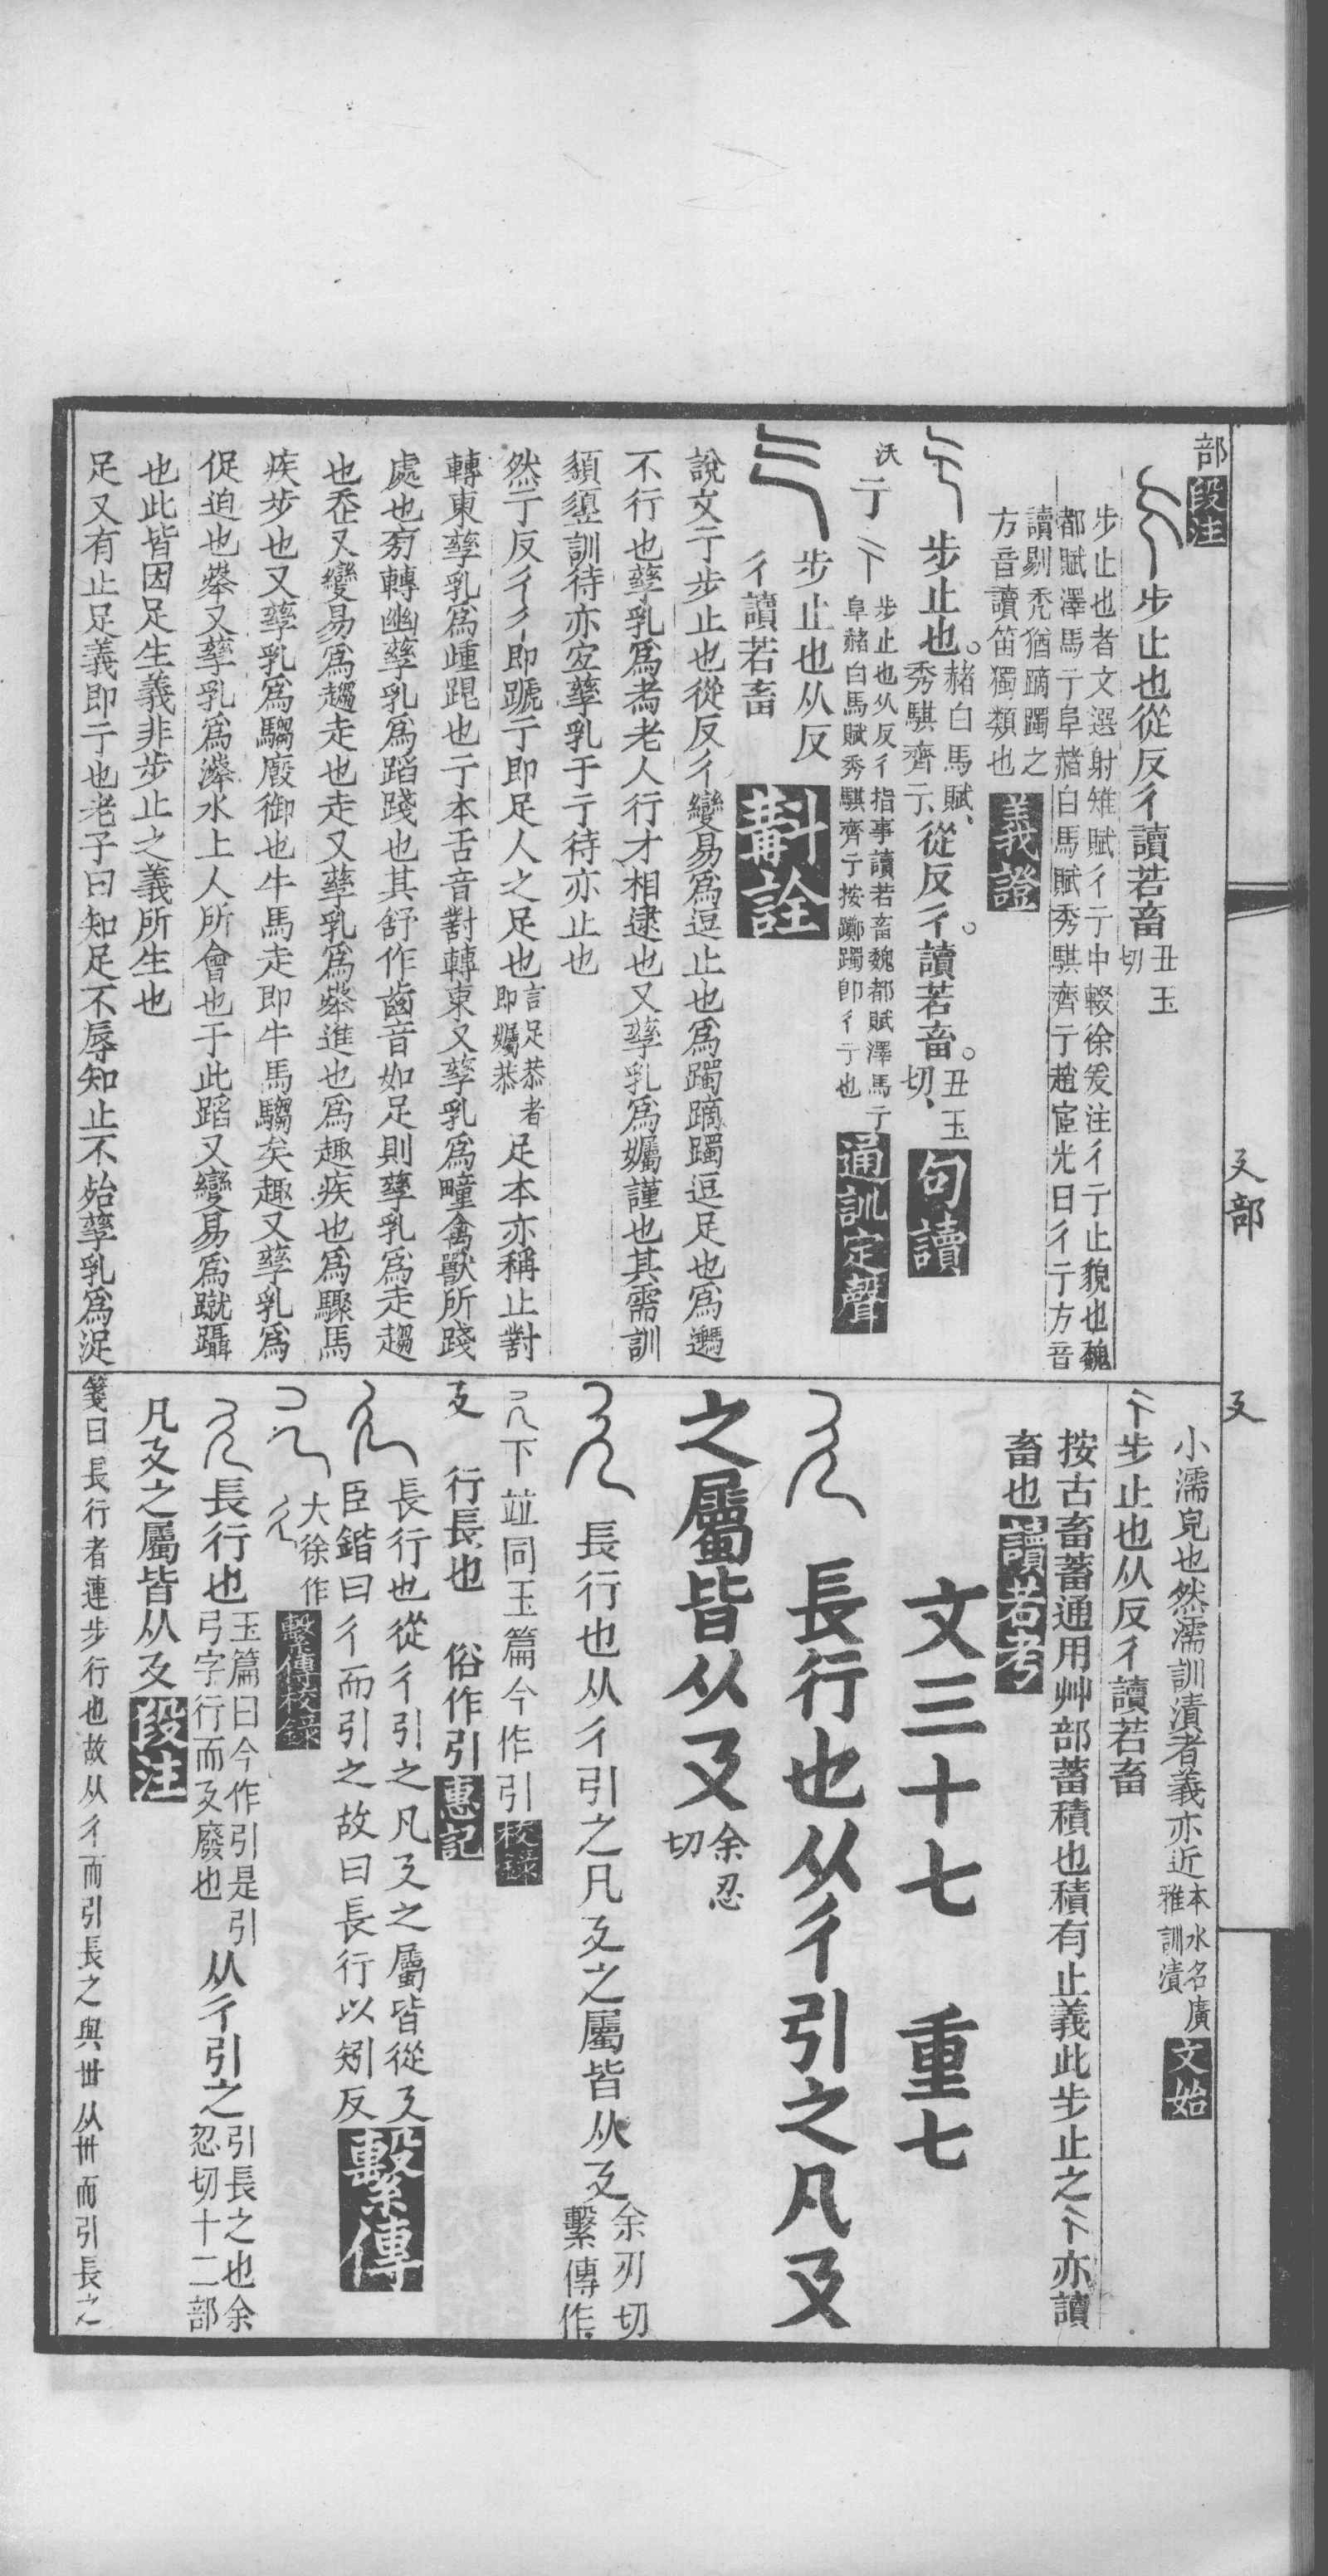 部段注
步止也從反彳讀若畜丑玉切
步止也者文選射雉賦彳亍中輟徐爰注彳亍止貌也魏
都賦澤馬亍阜赭白馬賦秀騏齊亍趙宧光曰彳亍方音
讀剔禿猶蹢躅之
方音讀笛獨類也義證
步止也。赭白馬賦、秀騏齊亍、從反彳。讀若畜。丑玉切、句讀
沃亍 步止也从反彳指事讀若畜魏都賦澤馬亍
阜赭白馬賦秀騏齊亍按躑躅卽彳亍也通訓定聲
步止也从反
彳讀若畜斠詮
說文亍步止也從反彳變易爲逗止也爲躅蹢躅逗足也爲遻
不行也孳乳爲耉老人行才相逮也又孳乳爲孎謹也其需訓
䇓䇓訓待亦宜孳乳于亍待亦止也
然亍反彳彳卽蹏亍卽足人之足也言足恭者卽孎恭足本亦稱止對
轉東孳乳爲歱跟也亍本舌音對轉東又孳乳爲疃禽獸所踐
處也旁轉幽孳乳爲蹈踐也其舒作齒音如足則孳乳爲走趨
也走又變易爲趨走也走又孳乳爲奏進也爲趣疾也爲驟馬
疾步也又孳乳爲騶廄御也牛馬走卽牛馬騶矣趣又孳乳爲
促迫也奏又孳乳爲湊水上人所會也于此蹈又變易爲蹴躡
也此皆因足生義非步止之義所生也
足又有止足義卽亍也老子曰知足不辱知止不殆孳乳爲浞
小濡皃也然濡訓漬者義亦近本水名廣雅訓漬文始
步止也从反彳讀若畜
按古畜蓄通用艸部蓄積也積有止義此步止之亍亦讀
畜也讀若考
文三十七 重七
長行也从彳引之凡廴
之屬皆从廴余忍切
長行也从彳引之凡廴之屬皆从廴余刃切繫傳作
下竝同玉篇今作引校錄
廴 行長也 俗作引惠記
長行也從彳引之凡廴之屬皆從廴
臣鍇曰彳而引之故曰長行以矧反繫傳
大徐作 繫傳校錄
長行也玉篇曰今作引是引弓字行而廴廢也从彳引之引長之也余忍切十二部
凡廴之屬皆从廴段注
箋曰長行者連步行也故从彳而引長之與丗从卅而引長之
廴部
廴